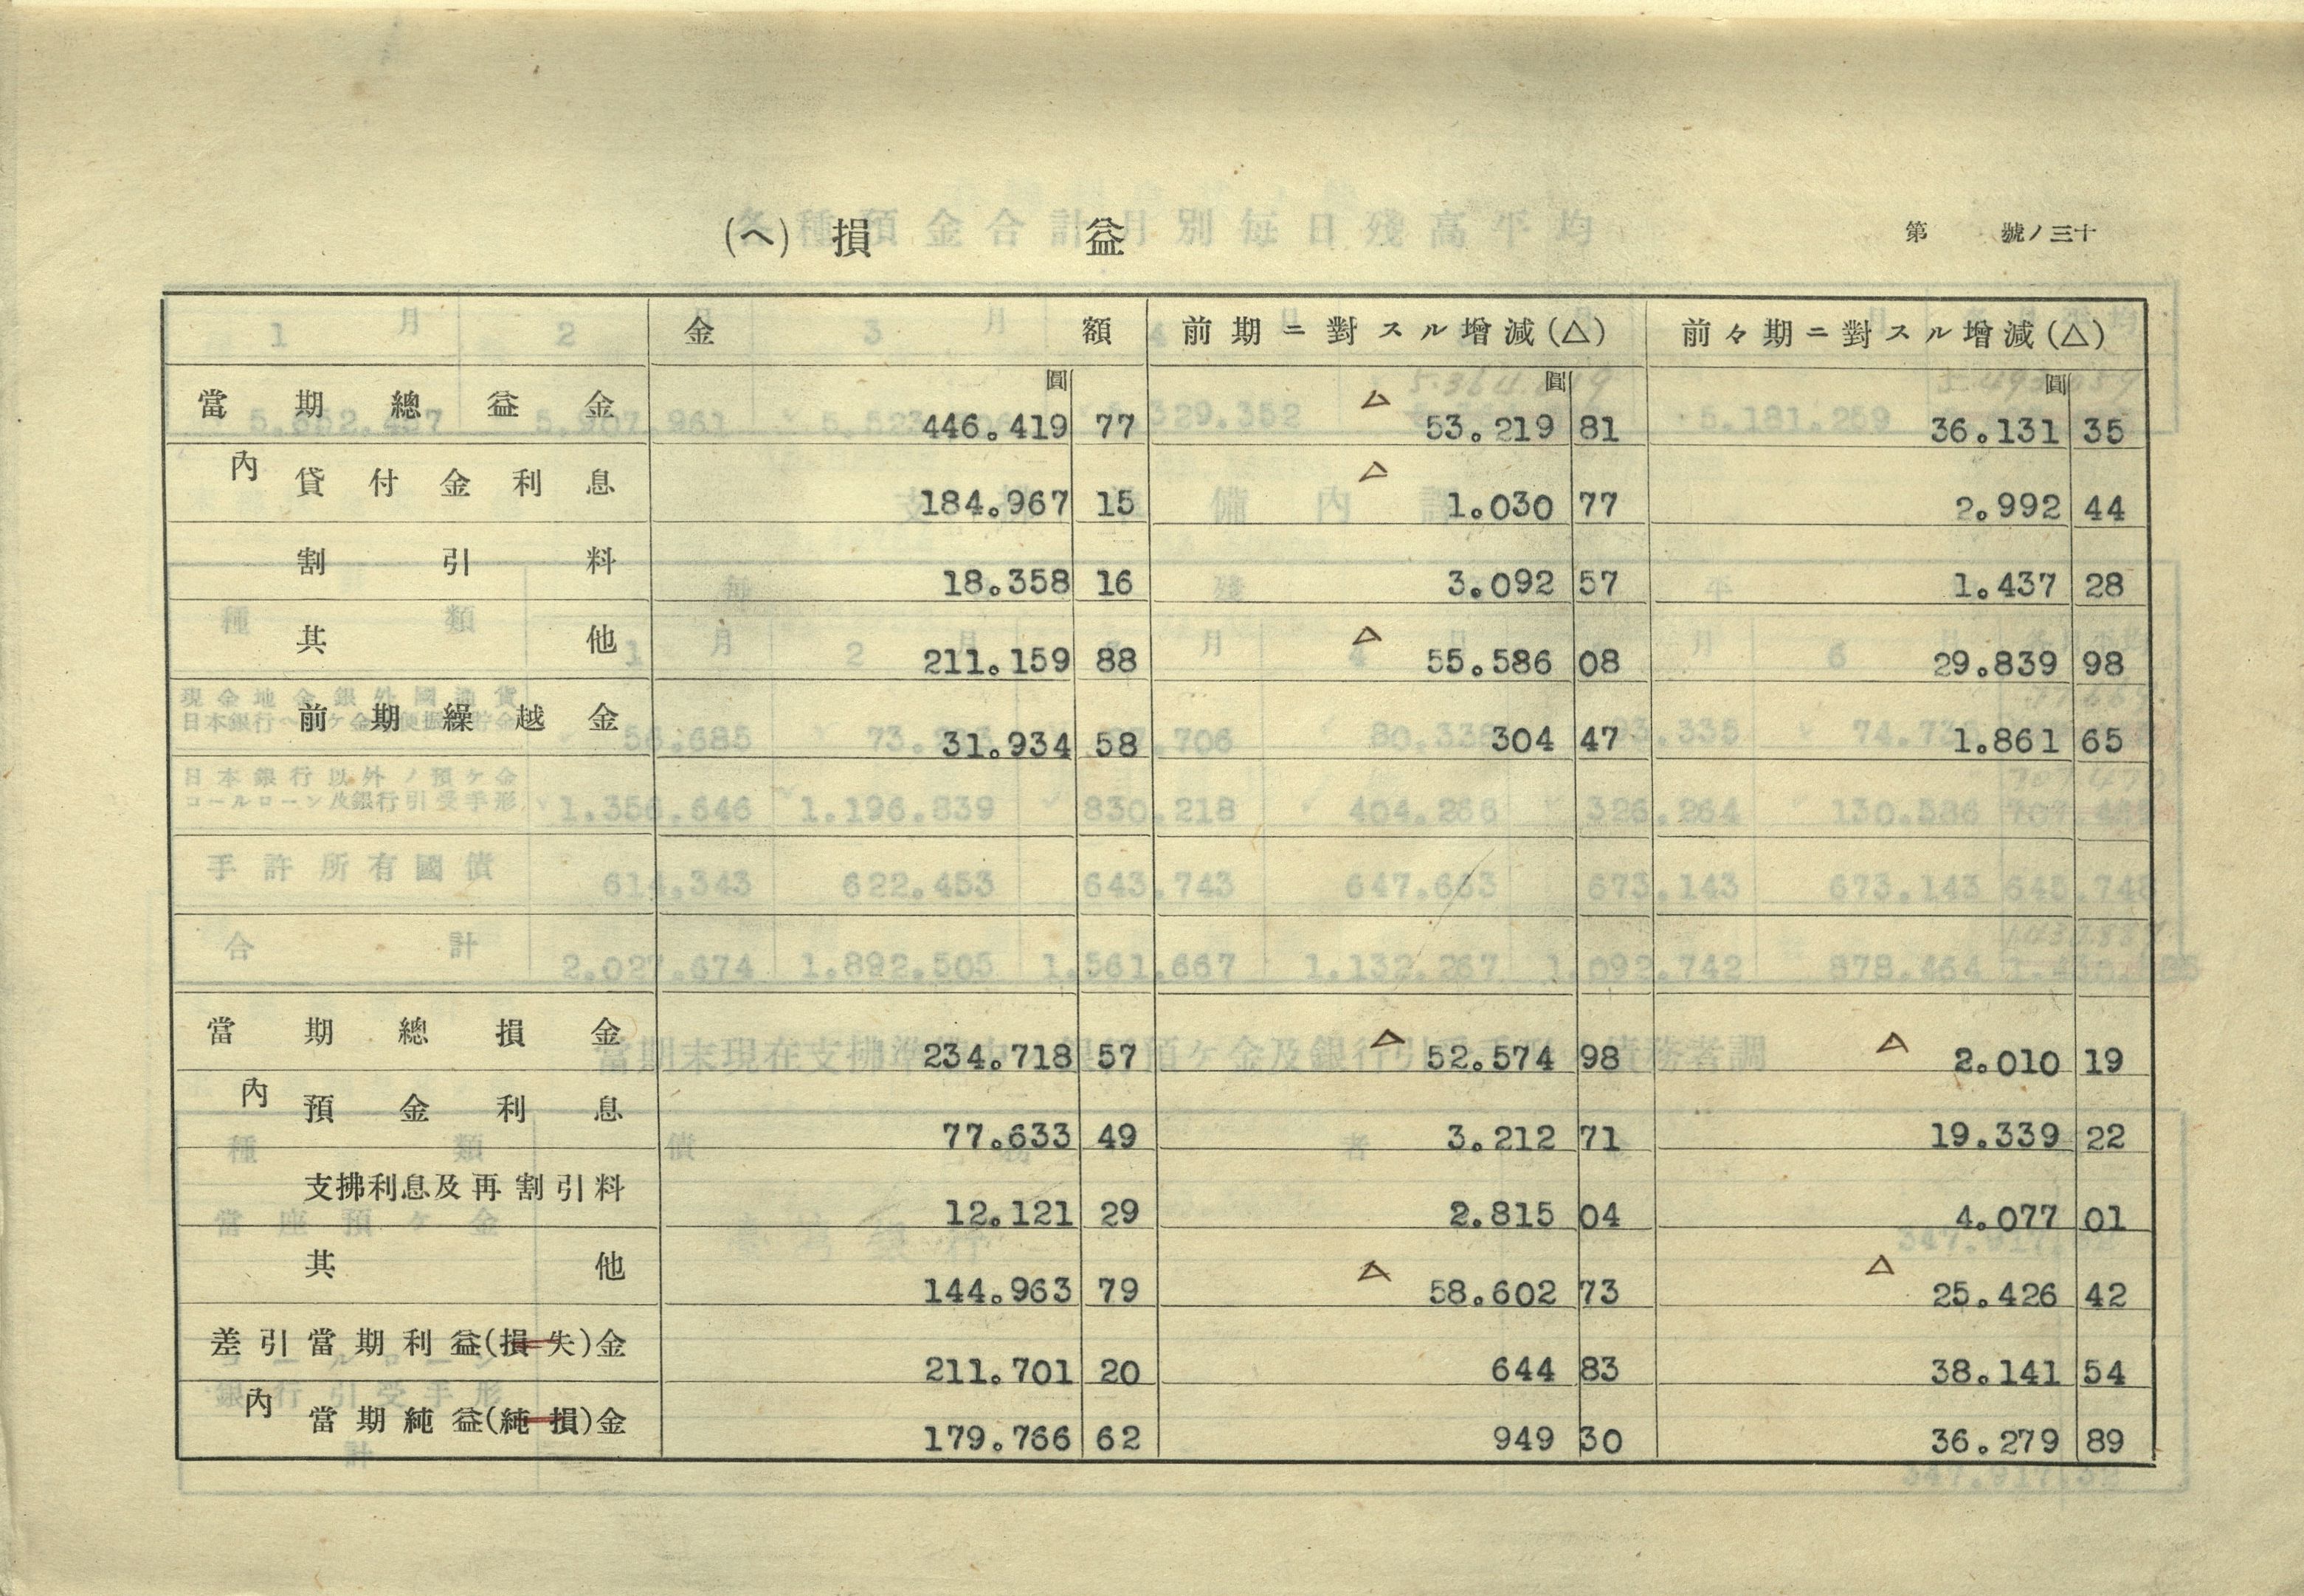 (ヘ) 損 益 第 號ノ三十
金 額 前期ニ對スル增減(△) 前々期ニ對スル增減(△)
圓 圓 圓
當期總益金 446.419 77 △ 53.219 81 36.131 35
內 貸付金利息 184.967 15 △ 1.030 77 2.992 44
割引料 18.358 16 3.092 57 1.437 28
其他 211.159 88 △ 55.586 08 29.839 98
前期繰越金 31.934 58 304 47 1.861 65
當期總損金 234.718 57 △ 52.574 98 △ 2.010 19
內 預金利息 77.633 49 3.212 71 19.339 22
支拂利息及再割引料 12.121 29 2.815 04 4.077 01
其他 144.963 79 △ 58.602 73 △ 25.426 42
差引當期利益(損失)金 211.701 20 644 83 38.141 54
內 當期純益(純損)金 179.766 62 949 30 36.279 89